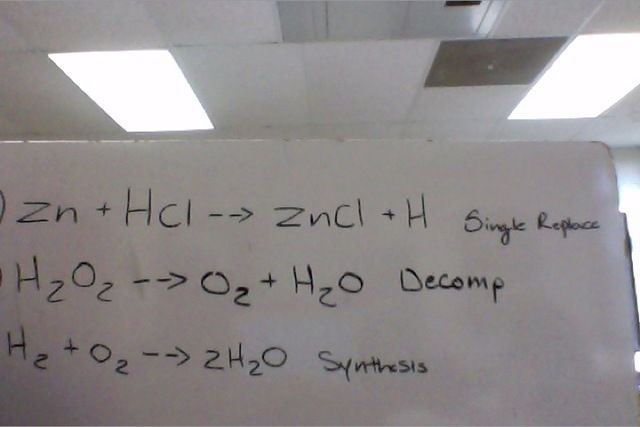 ) Zn + HCl --> ZnCl + H Single Replace
) H₂O₂ --> O₂ + H₂O Decomp
H₂ + O₂ --> 2H₂O Synthesis